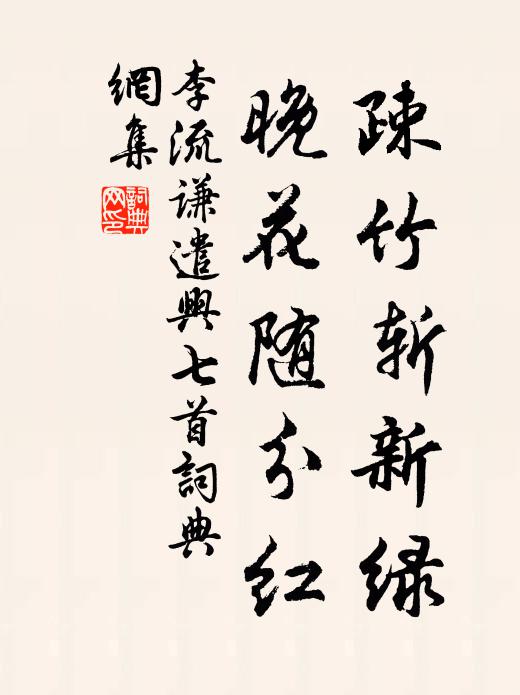 疎竹斩新绿
晚花随分红
李流谦遣興七首詞典
網集
詞典網印